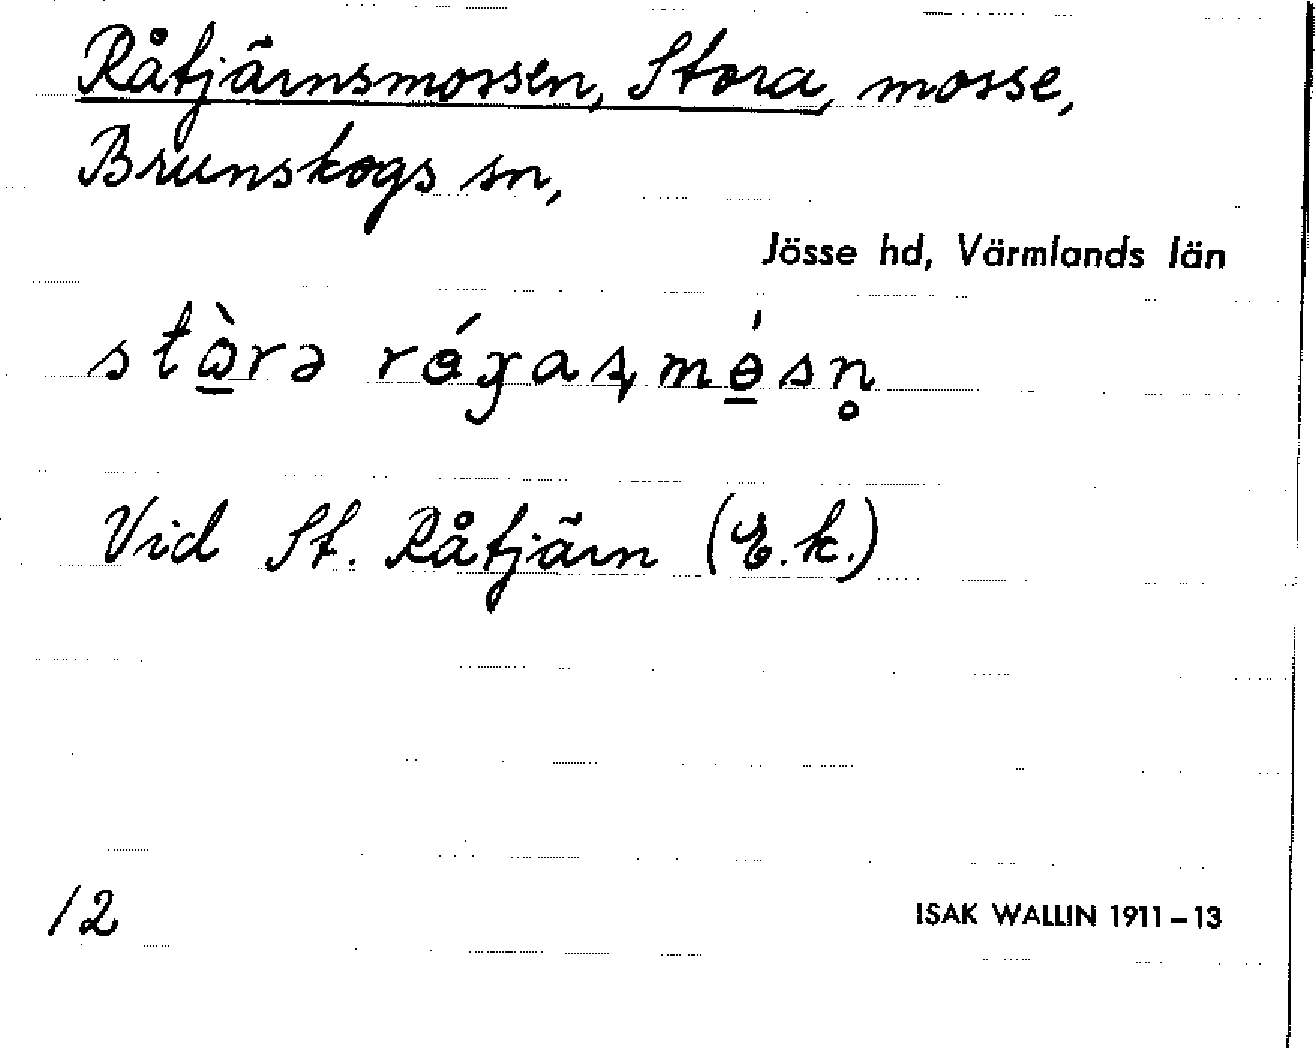 Råtjärnsmossen, Stora, mosse,
Brunskogs sn,
Jösse hd, Värmlands län
Vid St. Råtjärn (E.k.)
12
ISAK WALLIN 1911–13